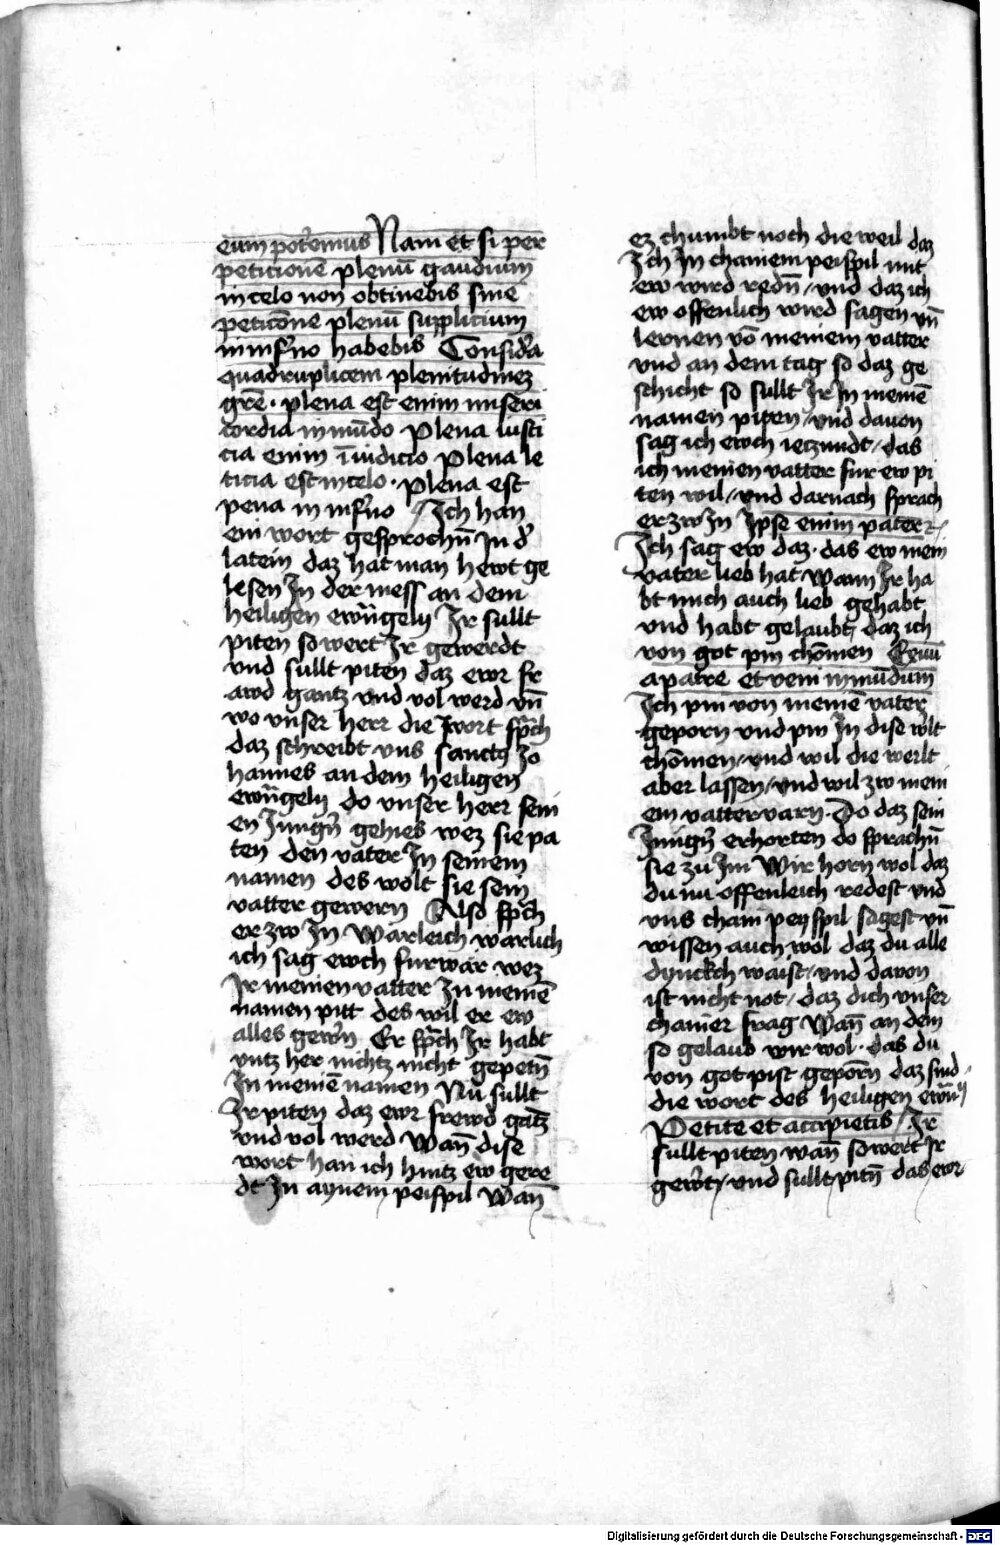 eum pot'emus Nam et si per
peticionē plenū gaudium
in celo non obtinebis sine
peticōne plenū supplicium
in inf'no habebis Consid'a
quadruplicem plenitudinez
grē · plena est enim miseri
cordia in mūdo Plena iusti
cia enim ī iudicio Plena le
ticia est in celo · plena est
pena in inf'no Ich han
ein wort gesprochn̄ In d'
latein daz hat man hewt ge
lesen In der mess an dem
heiligen ewn̄gely Ir sullt
piten so wert Ir gewerdt
vnd sullt piten daz ewr fr
awd gantz vnd vol werd vn̄
wo vnser herr die wort sprach
daz schreibt vns sanctꝯ Jo
hannes an dem heiligen
ewn̄gely do vnser herr sein
en Jung'n gehies wez sie pa
ten den vater In seinem
namen des wolt sie sein
vatter gewern Also sp̄ch
er zw In Warleich warlich
ich sag ewch furwar wez
Ir meinen vatter In meinē
namen pitt des wil er ew
alles gew'n Er sp̄ch Ir habt
vntz her nichtz nicht gepetn̄
In meinē namen Nu sullt
Ir piten daz ewr frewd gātz
vnd vol werd Wan̄ dise
wort han ich hintz ew gere
dt In aynem peispil Wan̄
ez chumbt noch die weil daz
Ich In chainem peispil mit
ew wird redn̄ / vnd daz ich
ew offenlich wird sagen vn̄
lernen vō meinem vatter
vnd an dem tag so daz ge
schicht so sullt Ir In meinē
namen piten / vnd davon
sag ich ewch ietzundt / das
ich meinen vatter fur ew pi
ten wil / vnd darnach sprach
er zw In Ipse enim pater
Ich sag ew daz · das ew mein
vater lieb hat / Wann Ir ha
bt mich auch lieb gehabt
vnd habt gelaubt daz ich
von got pin chōmen Exiui
a patre et veni in mūdum
Ich pin von meinē vater
geporn vnd pin In dise wlt
chōmen / vnd wil die werlt
aber lassen / vnd wil zw mein
em vatter varn · Do daz sein
Jung'n erhorten do sprachn̄
sie zu Im Wir horn wol daz
du nu offenleich redest vnd
vns chain peyspil sagest vn̄
wissen auch wol daz du alle
dynckch waist / vnd davon
ist nicht not / daz dich vnser
chainer frag Wan̄ an dem
so gelaub wir wol · das du
von got pist geporn̄ daz sind
die wort des heiligen ewn̄gely
Petite et accipietis / Ir
sullt piten wan̄ so wert Ir
gew't / vnd sullt pitn̄ das ewr
Digitalisierung gefördert durch die Deutsche Forschungsgemeinschaft - DFG